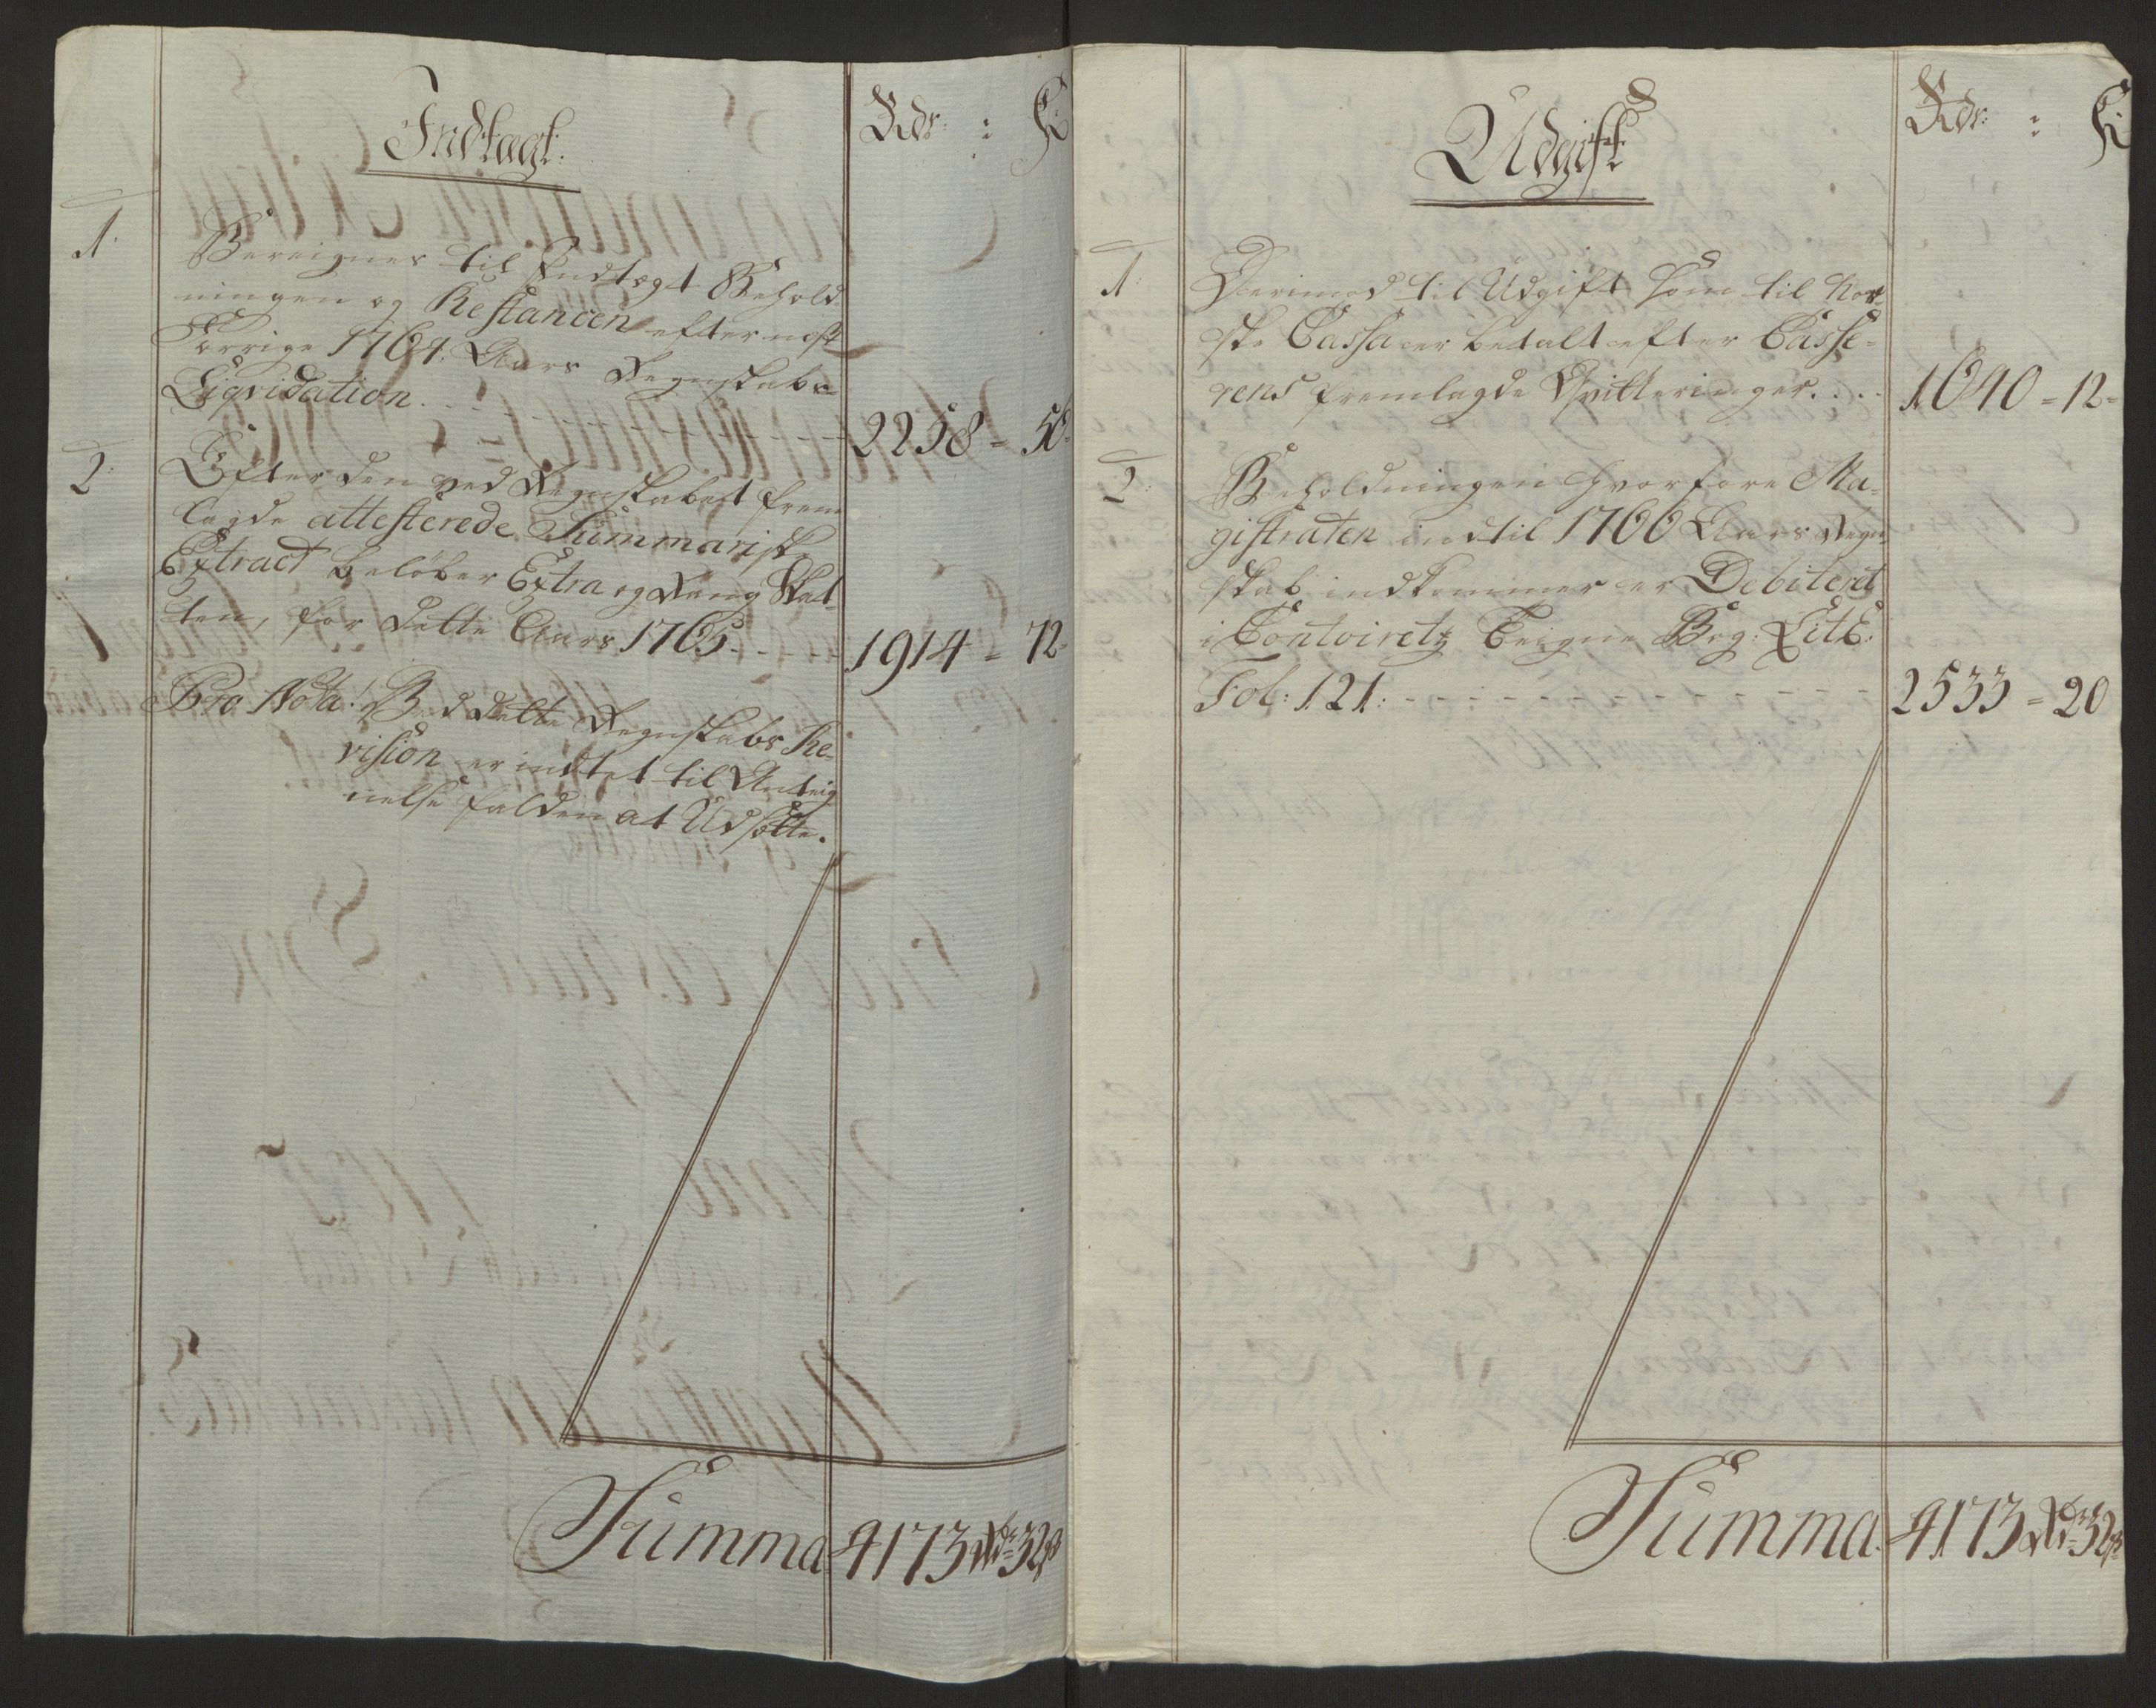 Indtægt.
Rdr: : ß
1.
Bereignes til Indtægt Behold
ningen og Restancen efter nest
Forrige 1764. Aars Regnskabs
Liqvidation. - - - - - - 2258 = 56.
2.
Efter den ved Regnskabet frem
lagde attesterede Summariske
Extract beløber Extra og Rang Skat
ten, for dette Aars 1765. - - - - 1914 = 72.
Pro Nota! Ved dette Regnskabs Re-
vision er intet til Anteig
nelse falden at Udsætte.
Summa. 4173 Rd 32 ß
Udgift
Rdr: : ß
1.
Derimod til Udgift som til Nor-
ske Cassa er betalt efter Casse-
rens fremlagde Qvitteringer. . . . 1640 = 12 =
2.
Beholdningen hvorfore Ma-
gistraten indtil 1766 Aars Regn
skab indkommer er Debiteret
i Contoiretz Teigne Bog: Lit E:
Fol: 121. - - - - - - 2533 = 20
Summa. 4173 Rd 32 ß